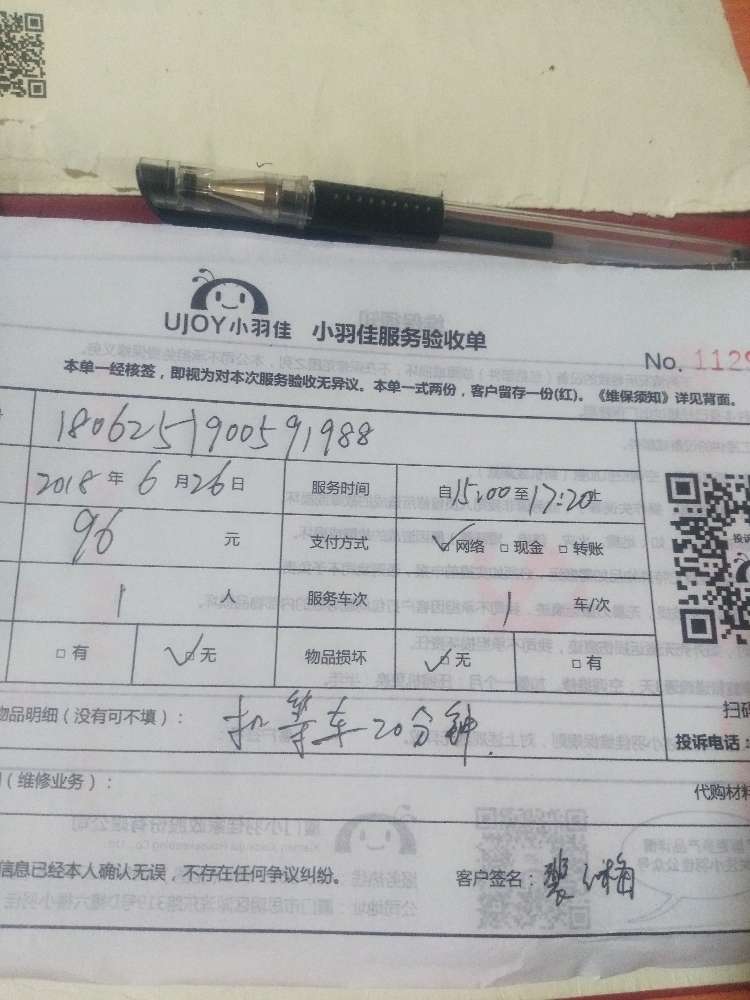 UJOY小羽佳 小羽佳服务验收单
No. 1129
本单一经核签，即视为对本次服务验收无异议。本单一式两份，客户留存一份(红)。《维保须知》详见背面。
1806251900591988
2018年6月26日 服务时间 自15:00至17:20止
96 元 支付方式 ✓网络 □现金 □转账
1 人 服务车次 1 车/次
□有 ✓□无 物品损坏 ✓□无 □有
扫码
物品明细（没有可不填）： 扣等车20分钟
投诉电话：
（维修业务）：
代购材料
信息已经本人确认无误，不存在任何争议纠纷。 客户签名：